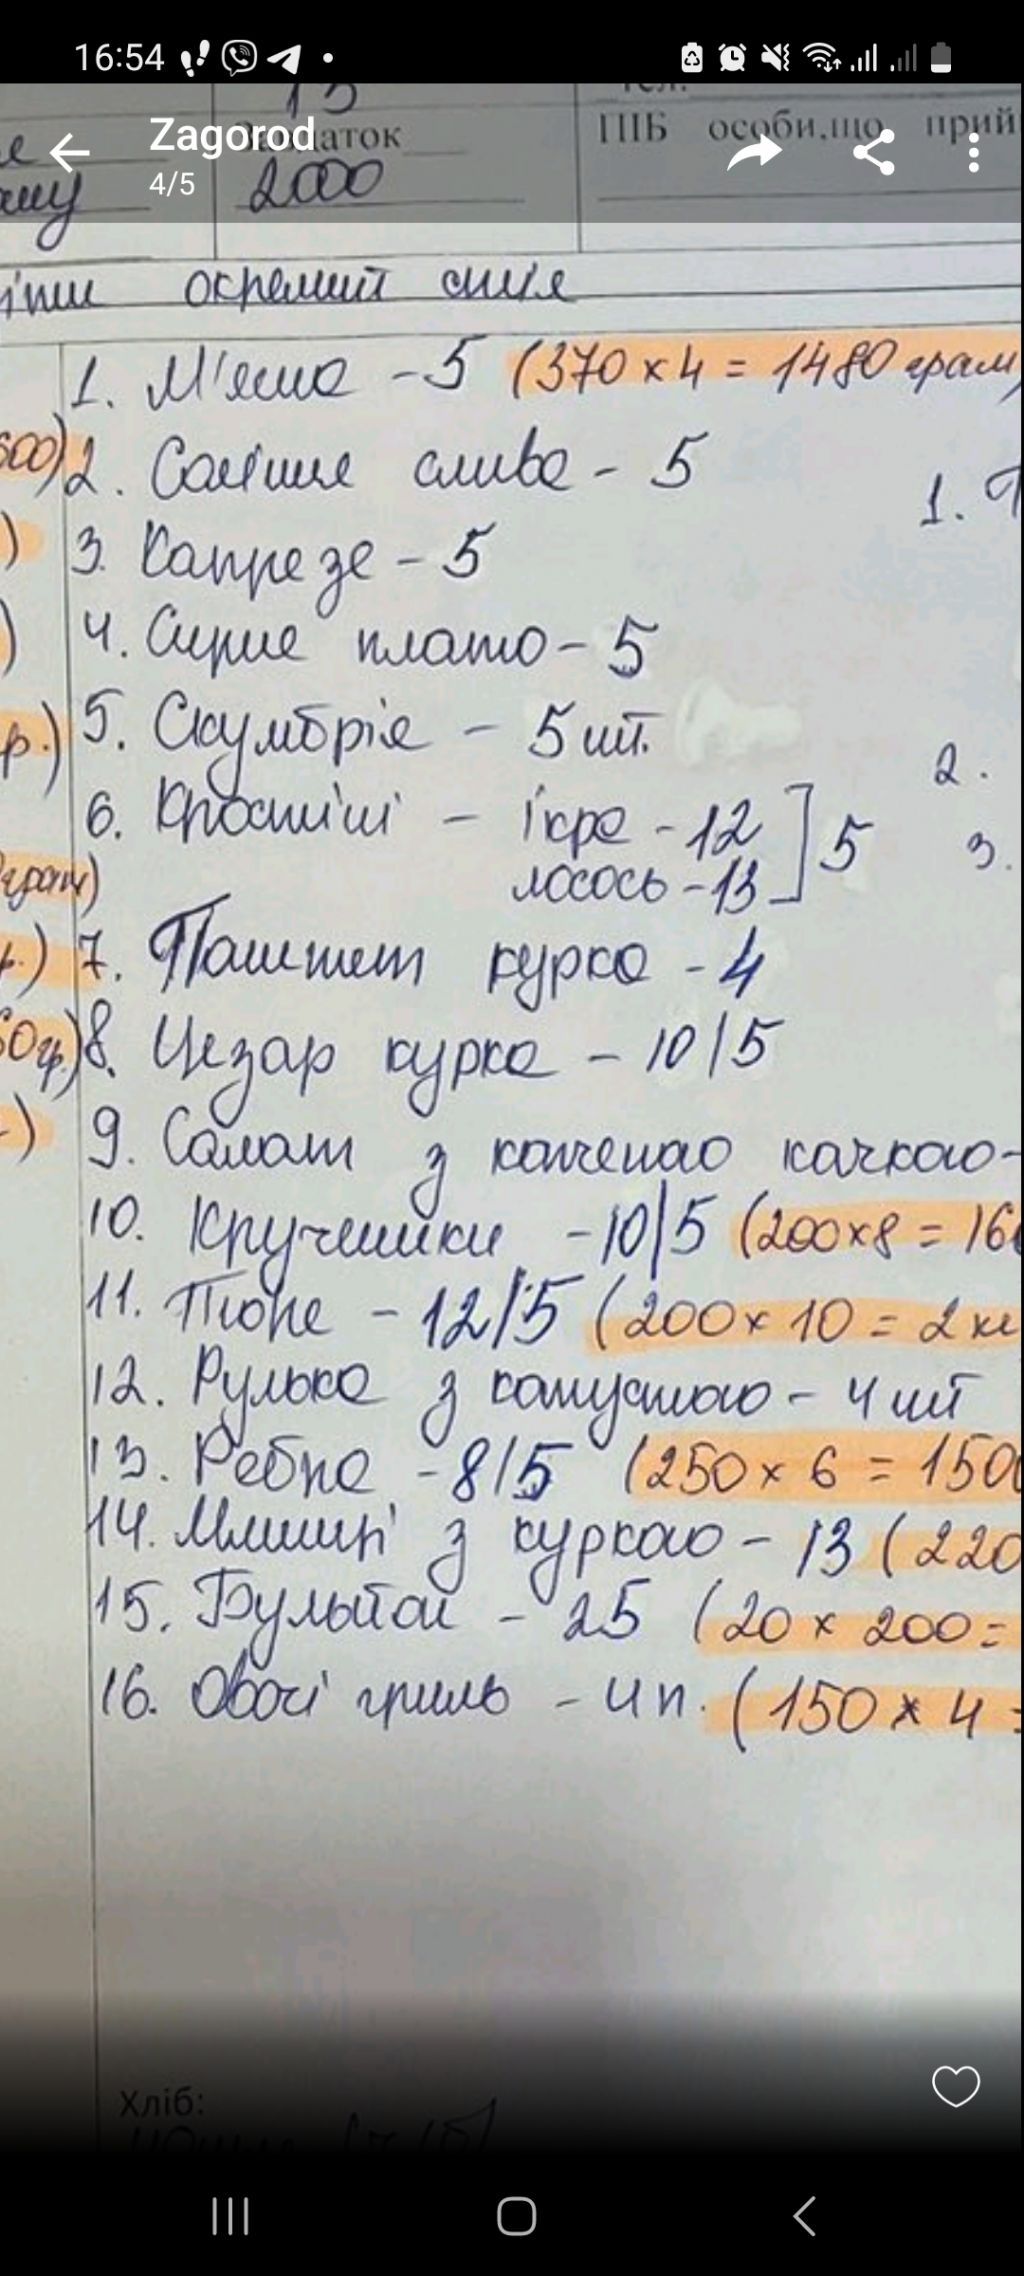 16:54
Zagorod
4/5
Завдаток
2000
ПІБ особи, що прий
окремий
1. М'ясна - 5 (370 x 4 = 1480 грам)
600) 2. Соління слива - 5
1.
3. Капрезе - 5
4. Сирне плато - 5
5. Скумбрія - 5 шт.
р.)
2.
6. Кростіні - ікра - 12 ] 5
3.
лосось - 13
грам)
7. Паштет курка - 4
60гр.) 8. Цезар курка - 10/5
9. Салат з копченою качкою -
10. Крученики - 10/5 (200x8 = 16
11. Пюре - 12/5 (200 x 10 = 2 кг
12. Рулька з капустою - 4 шт
13. Ребра - 8/5 (250 x 6 = 150
14. Млинці з куркою - 13 (220
15. Бульйон - 25 (20 x 200 =
16. Овочі гриль - 4 п. (150 x 4 =
Хліб: